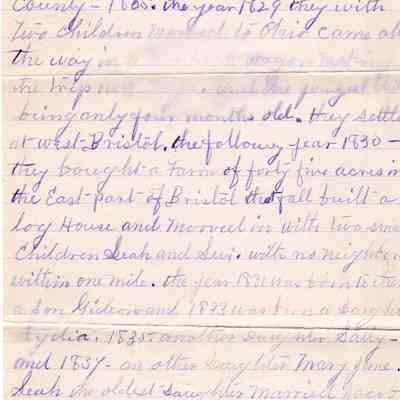 County - 1805. the year 1829 they with
two children mooved to Ohio came all
the way in a wagon making
the trip and the youngest
being only four months old. they settled
at west-Bristol. the followig year 1830 -
they bought a farm of forty five acres in
the East-part of Bristol that fall built a
log House and mooved in with two small
Children Leah and Levi. with no neighbor
within one mile. the year 1831 was born to them
a son Gideon and 1833 was born a Daughter
Lydia. 1835 another Daughter Sally -
and 1837 - an other Daughter Mary Jane.
Leah the oldest Daughter Married